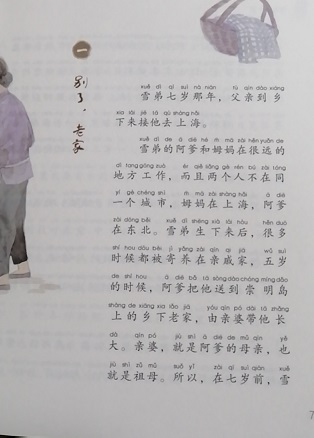 一
别了，老家
xuě dì qī suì nà nián fù qīn dào xiāng
雪弟七岁那年，父亲到乡
xià lái jiē tā qù shàng hǎi
下来接他去上海。
xuě dì de ā diē hé m̄ mā zài hěn yuǎn de
雪弟的阿爹和姆妈在很远的
dì fang gōng zuò ér qiě liǎng gè rén bù zài tóng
地方工作，而且两个人不在同
yī gè chéng shì m̄ mā zài shàng hǎi ā diē
一个城市，姆妈在上海，阿爹
zài dōng běi xuě dì shēng xià lái hòu hěn duō
在东北。雪弟生下来后，很多
shí hou dōu bèi jì yǎng zài qīn qi jiā wǔ suì
时候都被寄养在亲戚家，五岁
de shí hou ā diē bǎ tā sòng dào chóng míng dǎo
的时候，阿爹把他送到崇明岛
shàng de xiāng xià lǎo jiā yóu qīn pó dài tā zhǎng
上的乡下老家，由亲婆带他长
dà qīn pó jiù shì ā diē de mǔ qīn yě
大。亲婆，就是阿爹的母亲，也
jiù shì zǔ mǔ suǒ yǐ zài qī suì qián xuě
就是祖母。所以，在七岁前，雪
7